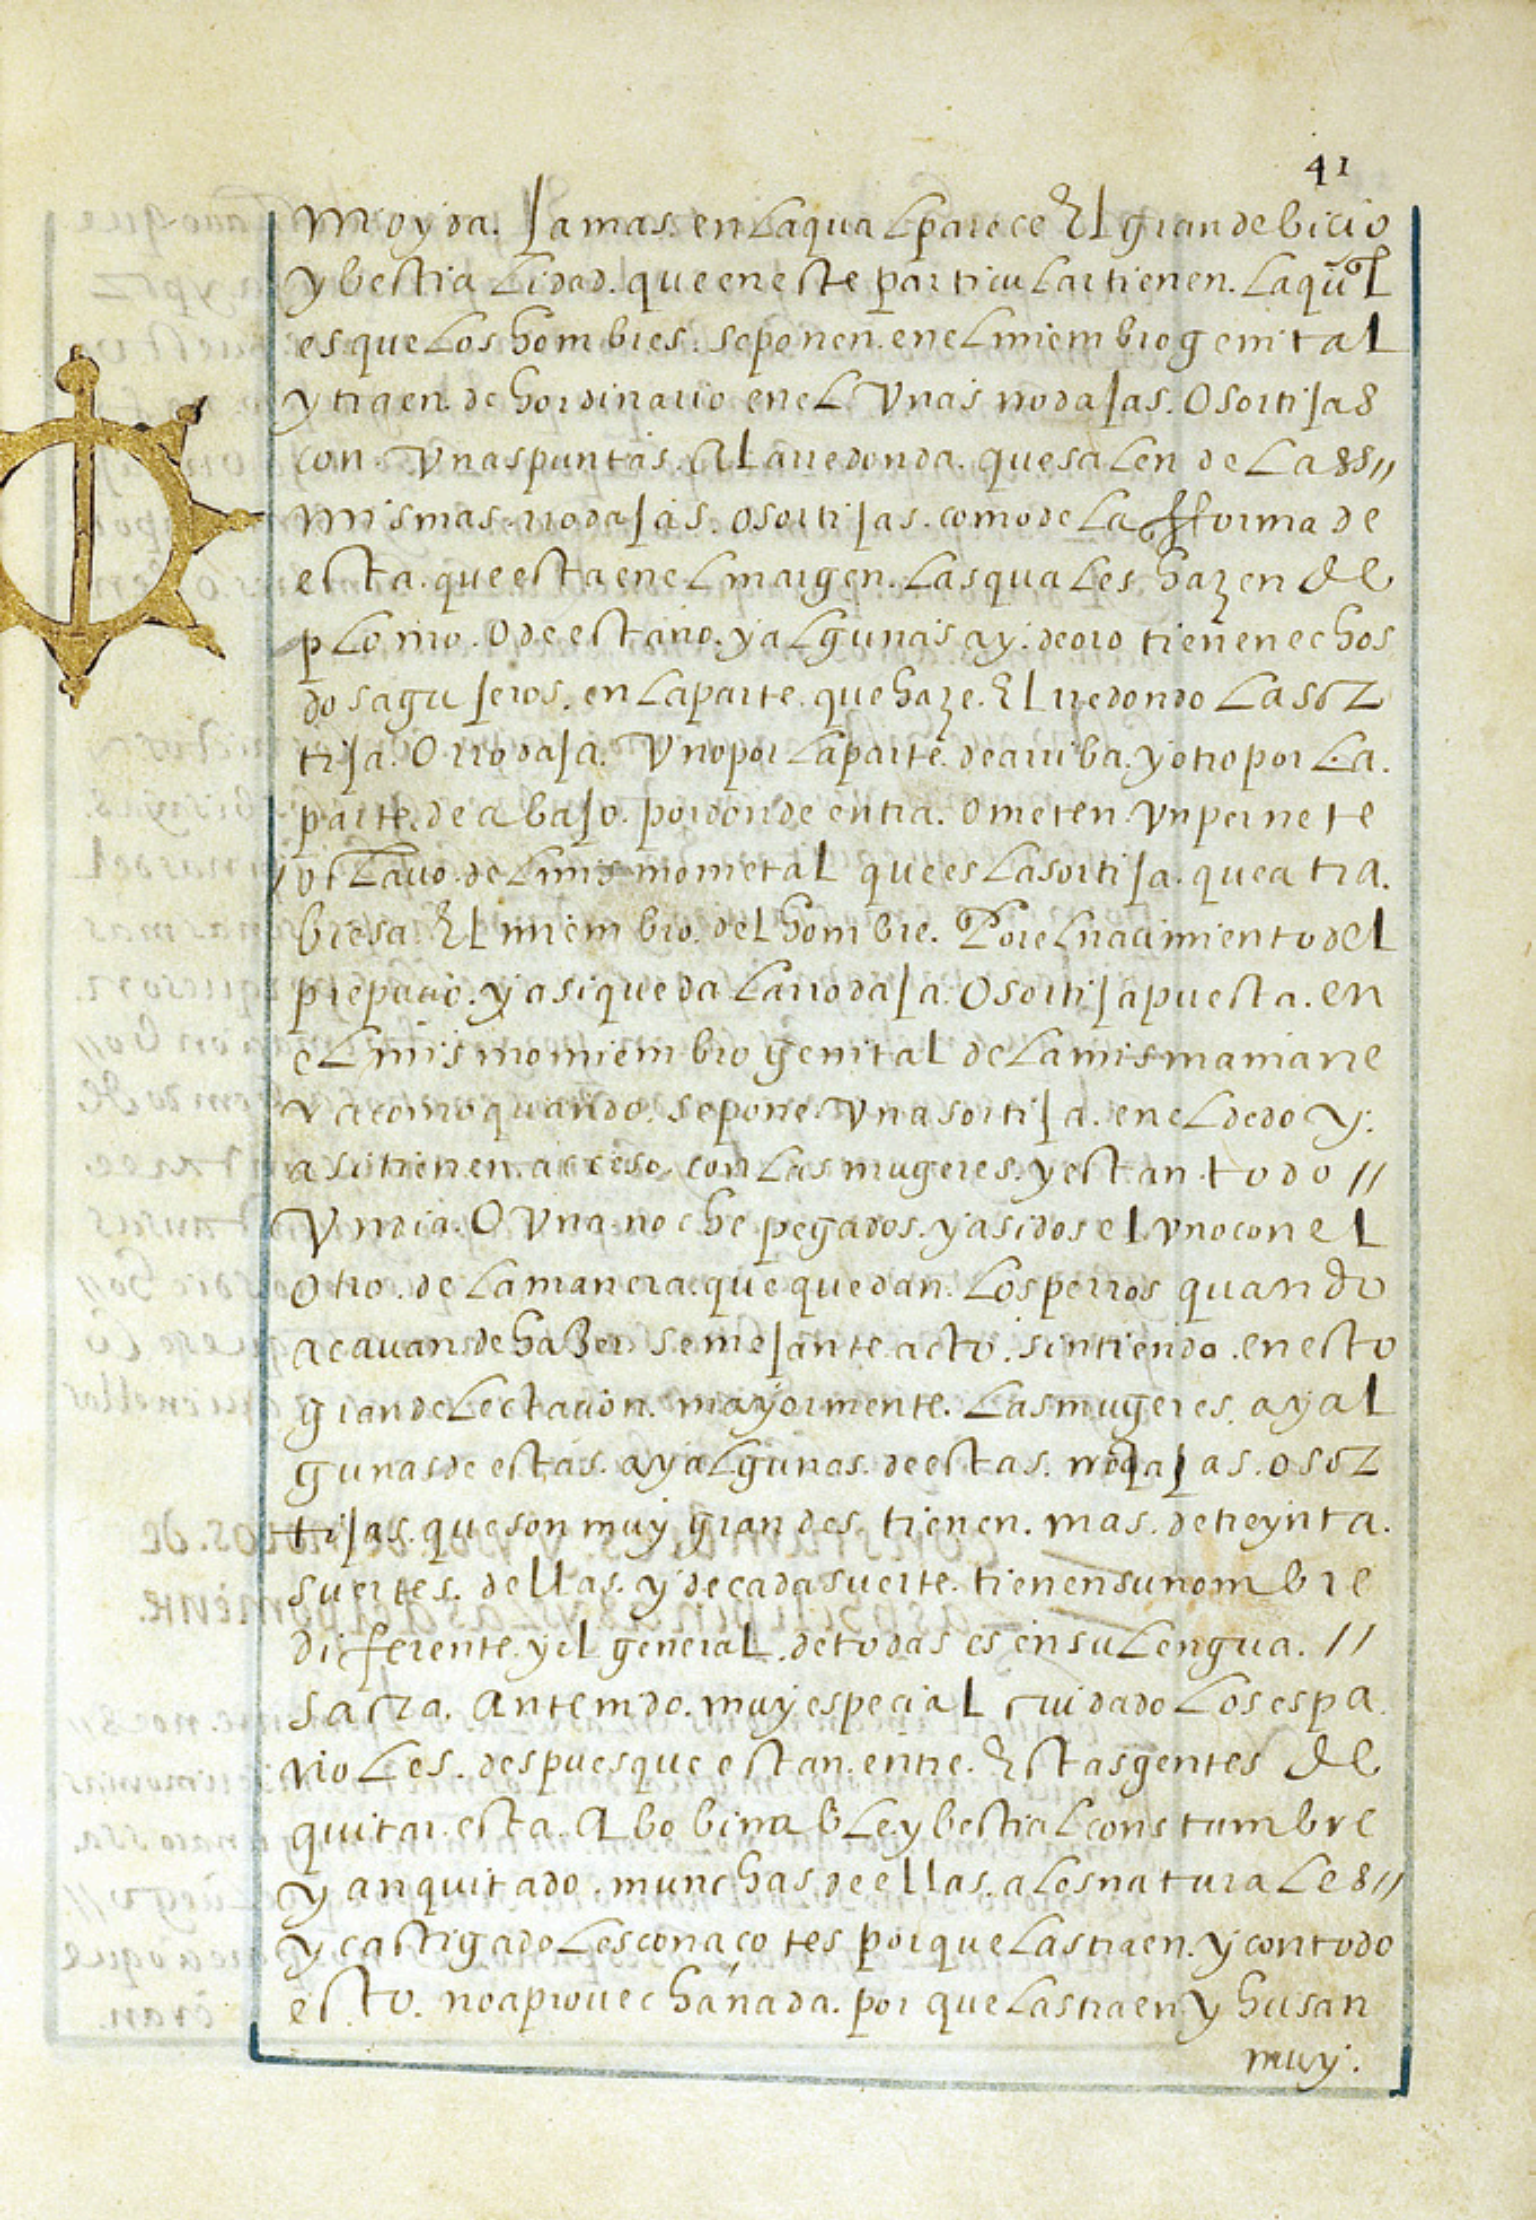 41
moyda. Jamas. en laqual parece El grande bicio
y bestialidad. que en este particular tienen. la qũl
es que los hombres. se ponen. en el miembro genital
y traen. de hordinario en el Vnas rrodajas. O sortijas
con Vnas puntas. Al arredonda. que salen de las //
mismas rrodajas. o sortijas. como de la fforma de
esta. que esta en el margen. las quales hazen de
plomo. O de estaño. y algunas ay. de oro tienen echos
dos agujeros. en la parte. que haze. El rredondo la sor
tija. O rrodaja. Vno por la parte. de arriba. y otro por la.
parte. de abajo. por donde entra. O meten Vn pernete
o clauo. del mismo metal que es la sortija. que atra.
biesa El miembro. del hombre. Por el nacimiento del
prepucio. y asi queda la rrodaja. O sortija puesta. en
el mismo miembro genital de la misma mane
ra como quando. se pone. Vna sortija. en el dedo y.
asi tienen. acceso. con las mugeres. y estan todo //
Vn dia. O Vna noche pegados. y asidos el vno con el
otro. de la manera que quedan. los perros quando
acauan de hazer semejante acto. sintiendo. en esto
gran delectacion. mayormente. las mugeres. ay al
gunas de estas. ay algunas. de estas. rrodajas. o sor
tijas. que son muy grandes. tienen. mas. de treynta.
suertes. dellas. y de cada suerte. tienen su nombre
diferente. y el general. de todas es en su lengua. //
sacra. An tenido. muy especial cuidado los espa
ñoles. despues que estan. entre. Estas gentes de
quitar. esta. Abobinable. y bestial constumbre
y an quitado. munchas de ellas. a los naturales //
y castigadolos con açotes porque las traen. y con todo
esto. no aprouecha nada. por que las traen y husan
muy.